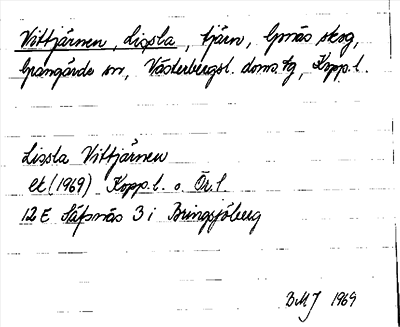 Vittjärnen, Lissla, tjärn, Gräs skog,
Grangärde sn, Västerbergsl. doms. tg, Kopp. l.
Lissla Vittjärnen
ek (1969) Kopp. l. o. Ör. l.
12 E Säfsnäs 3 i Bringsjöberg
BMJ 1969